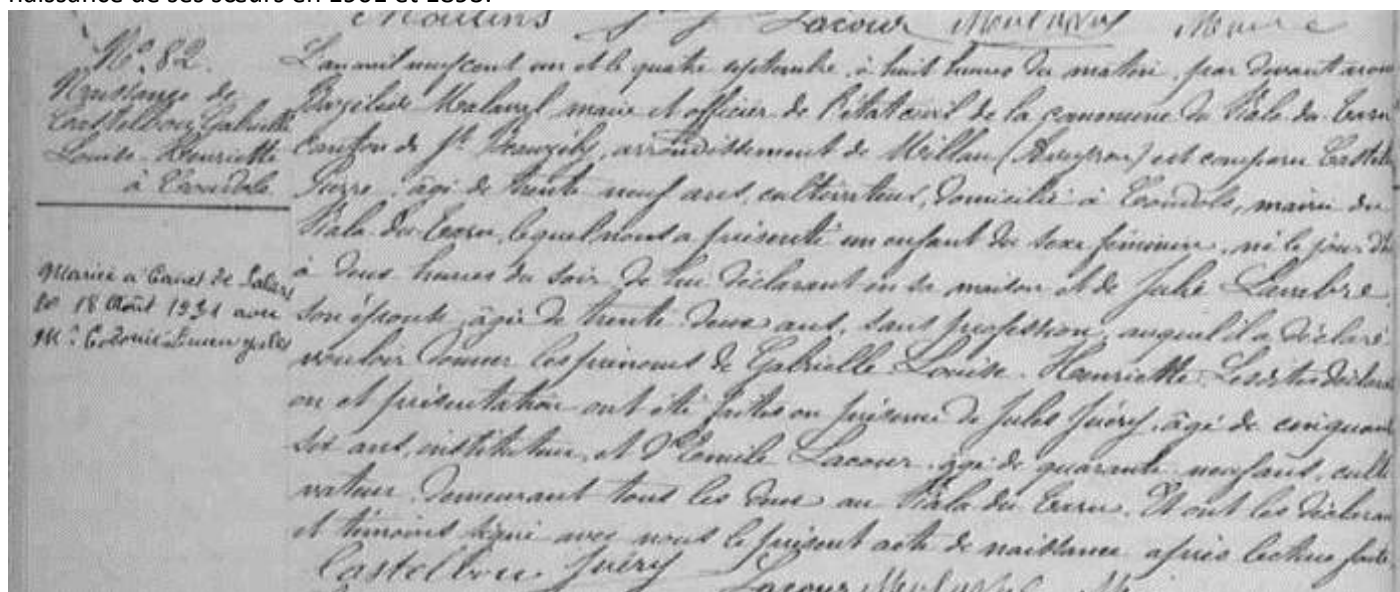 naissance de ses sœurs en 1901 et 1898.
Lacour
N° 82.
Naissance de
Castelbou Gabrielle
Louise Henriette
à
Marié à Canet de Salars
le 18 Août 1931 avec
L'an mil neuf cent un et le quatre septembre, à huit heures du matin, par devant nous
maire et officier de l'état civil de la commune du Viala du Tarn
canton de St Beauzély, arrondissement de Millau (Aveyron) est comparu
Pierre, âgé de trente neuf ans, cultivateur, domicilié à mairie du
Viala du Tarn, lequel nous a présenté un enfant du sexe féminin, né le jour
à deux heures du soir, de lui déclarant en sa maison et de Julie
son épouse, âgée de trente deux ans, sans profession, auquel il a déclaré
vouloir donner les prénoms de Gabrielle Louise Henriette. Lesdites
on et présentation ont été faites en présence de Jules Juéry, âgé de cinquante
ans, instituteur, et Emile Lacour, âgé de quarante neuf ans, culti
vateur demeurant tous les deux au Viala du Tarn. Et ont les
et témoins signé avec nous le présent acte de naissance après lecture faite
Castelbou Juéry
Lacour